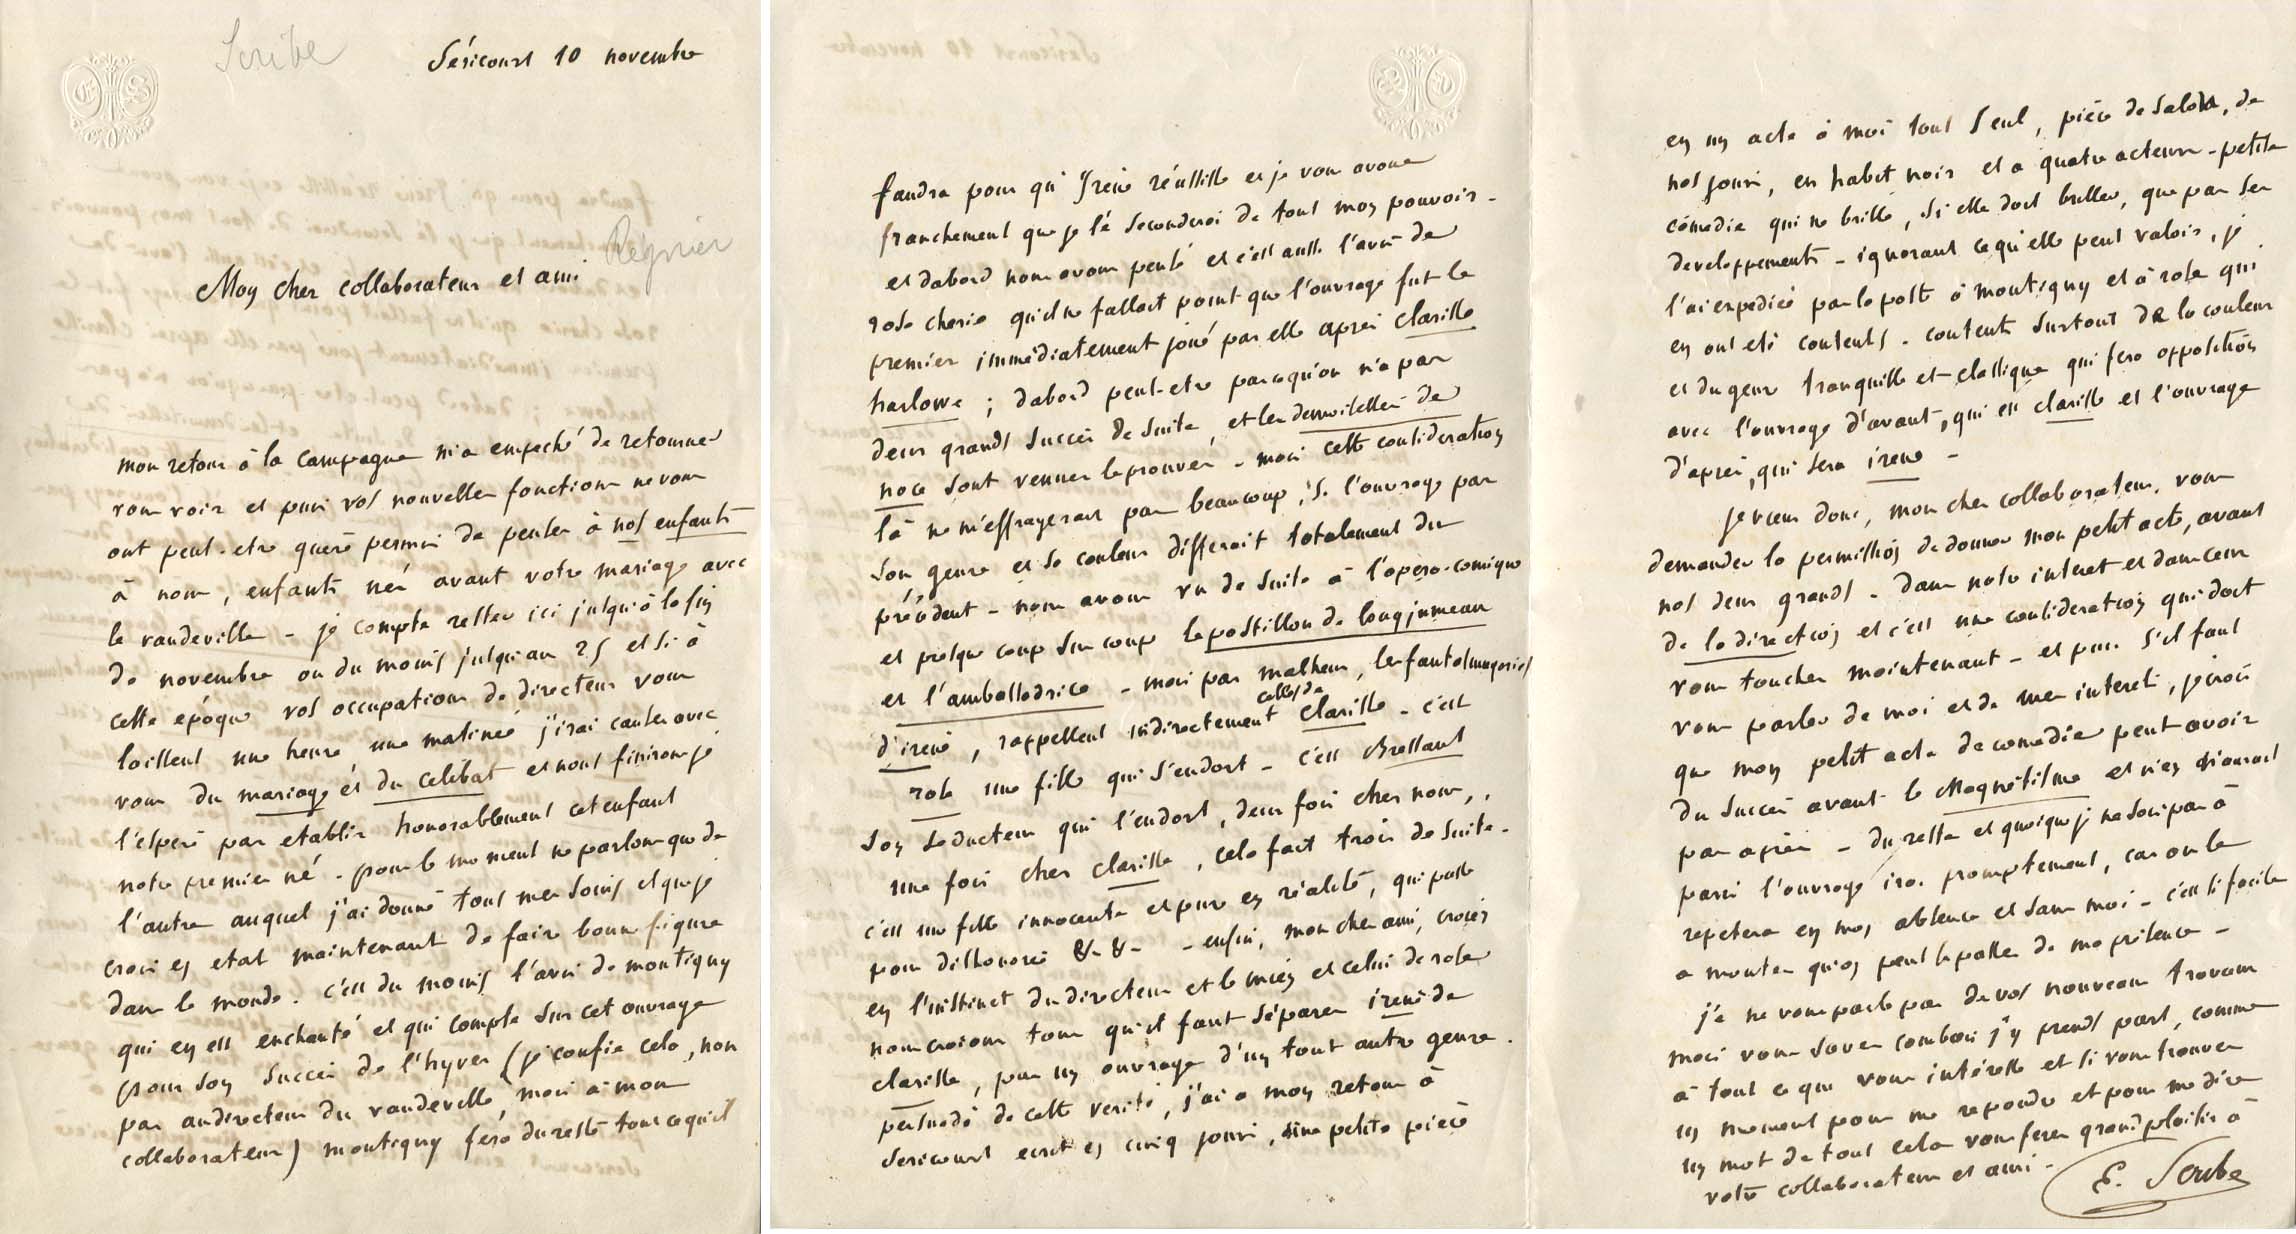 Scribe
Séricourt 10 novembre
Regnier
Mon cher collaborateur et ami
mon retour à la campagne m'a empeché de retourner
vous voir et puis vos nouvelles fonctions ne vous
ont peut-etre guere permis de penser à nos enfants
à nous, enfants nés avant votre mariage avec
le vaudeville - je compte rester ici jusqu'à la fin
de novembre ou du moins jusqu'au 25 et si à
cette epoque vos occupations de directeur vous
laissent une heure une matinée j'irai causer avec
vous du mariage et du celibat et nous finirons je
l'espere par etablir honorablement cet enfant
notre premier né - pour le moment ne parlons que de
l'autre auquel j'ai donné tous mes soins et que je
crois en etat maintenant de faire bonne figure
dans le monde. c'est du moins l'avis de montigny
qui en est enchanté et qui compte sur cet ouvrage
pour son succès de l'hyver (je confie cela, non
pas au directeur du vaudeville, mais à mon
collaborateur) montigny fera du reste tout ce qu'il
faudra pour qu'Irene réussisse et je vous avoue
franchement que je le seconderai de tout mon pouvoir -
et dabord nous avons pensé et c'est aussi l'avis de
rose cherie qu'il ne fallait point que l'ouvrage fut le
premier immédiatement joué par elle après clarisse
harlowe ; dabord peut-etre parcequ'on n'a pas
deux grands succès de suite, et les demoiselles de
noce sont venues le prouver - mais cette consideration
là ne m'effrayerait pas beaucoup, si l'ouvrage par
son genre et sa couleur différait totalement du
précédent - nous avons vu de suite à l'opera-comique
et presque coup sur coup le postillon de longjumeau
et l'ambassadrice - mais par malheur, les fantasmagories
d'irene, rappellent indirectement celles de clarisse - c'est
rose une fille qui s'endort - c'est Bressant
son seducteur qui l'endort, deux fois chez nous,
une fois chez clarisse, cela fait trois de suite -
c'est une fille innocente et pure en réalité, qui passe
pour deshonorée &-&- - enfin, mon cher ami, croiés
en l'instinct du directeur et le mien et celui de rose
nous croions tous qu'il faut séparer irene de
clarisse, par un ouvrage d'un tout autre genre.
persuadé de cette verité, j'ai à mon retour à
sericourt ecrit en cinq jours, une petite pièce
en un acte à moi tout seul, pièce de salon, de
nos jours, en habit noir et a quatre acteurs - petite
comedie qui ne brille, si elle doit briller, que par ses
developpements - ignorant ce qu'elle peut valoir, je
l'ai expediée par la poste à montigny et à rose qui
en ont eté contents - contents surtout de la couleur
et du genre tranquille et classique qui fera opposition
avec l'ouvrage d'avant, qui est clarisse et l'ouvrage
d'après, qui sera irene -
je viens donc, mon cher collaborateur, vous
demander la permission de donner mon petit acte, avant
nos deux grands - dans notre interet et dans ceux
de la direction et c'est une consideration qui doit
vous toucher maintenant - et puis s'il faut
vous parler de moi et de mes interets, je crois
que mon petit acte de comedie peut avoir
du succès avant le Magnétisme et n'en n'aurait
pas après - du reste et quoique je ne sois pas à
paris l'ouvrage ira promptement, car on le
repetera en mon absence et sans moi - c'est si facile
a monter qu'on peut se passer de ma présence -
je ne vous parle pas de vos nouveaux travaux
mais vous savez combien j'y prends part, comme
à tout ce qui vous intéresse et si vous trouvez
un moment pour me repondre et pour me dire
un mot de tout cela vous ferez grand plaisir à
votre collaborateur et ami -
E. Scribe